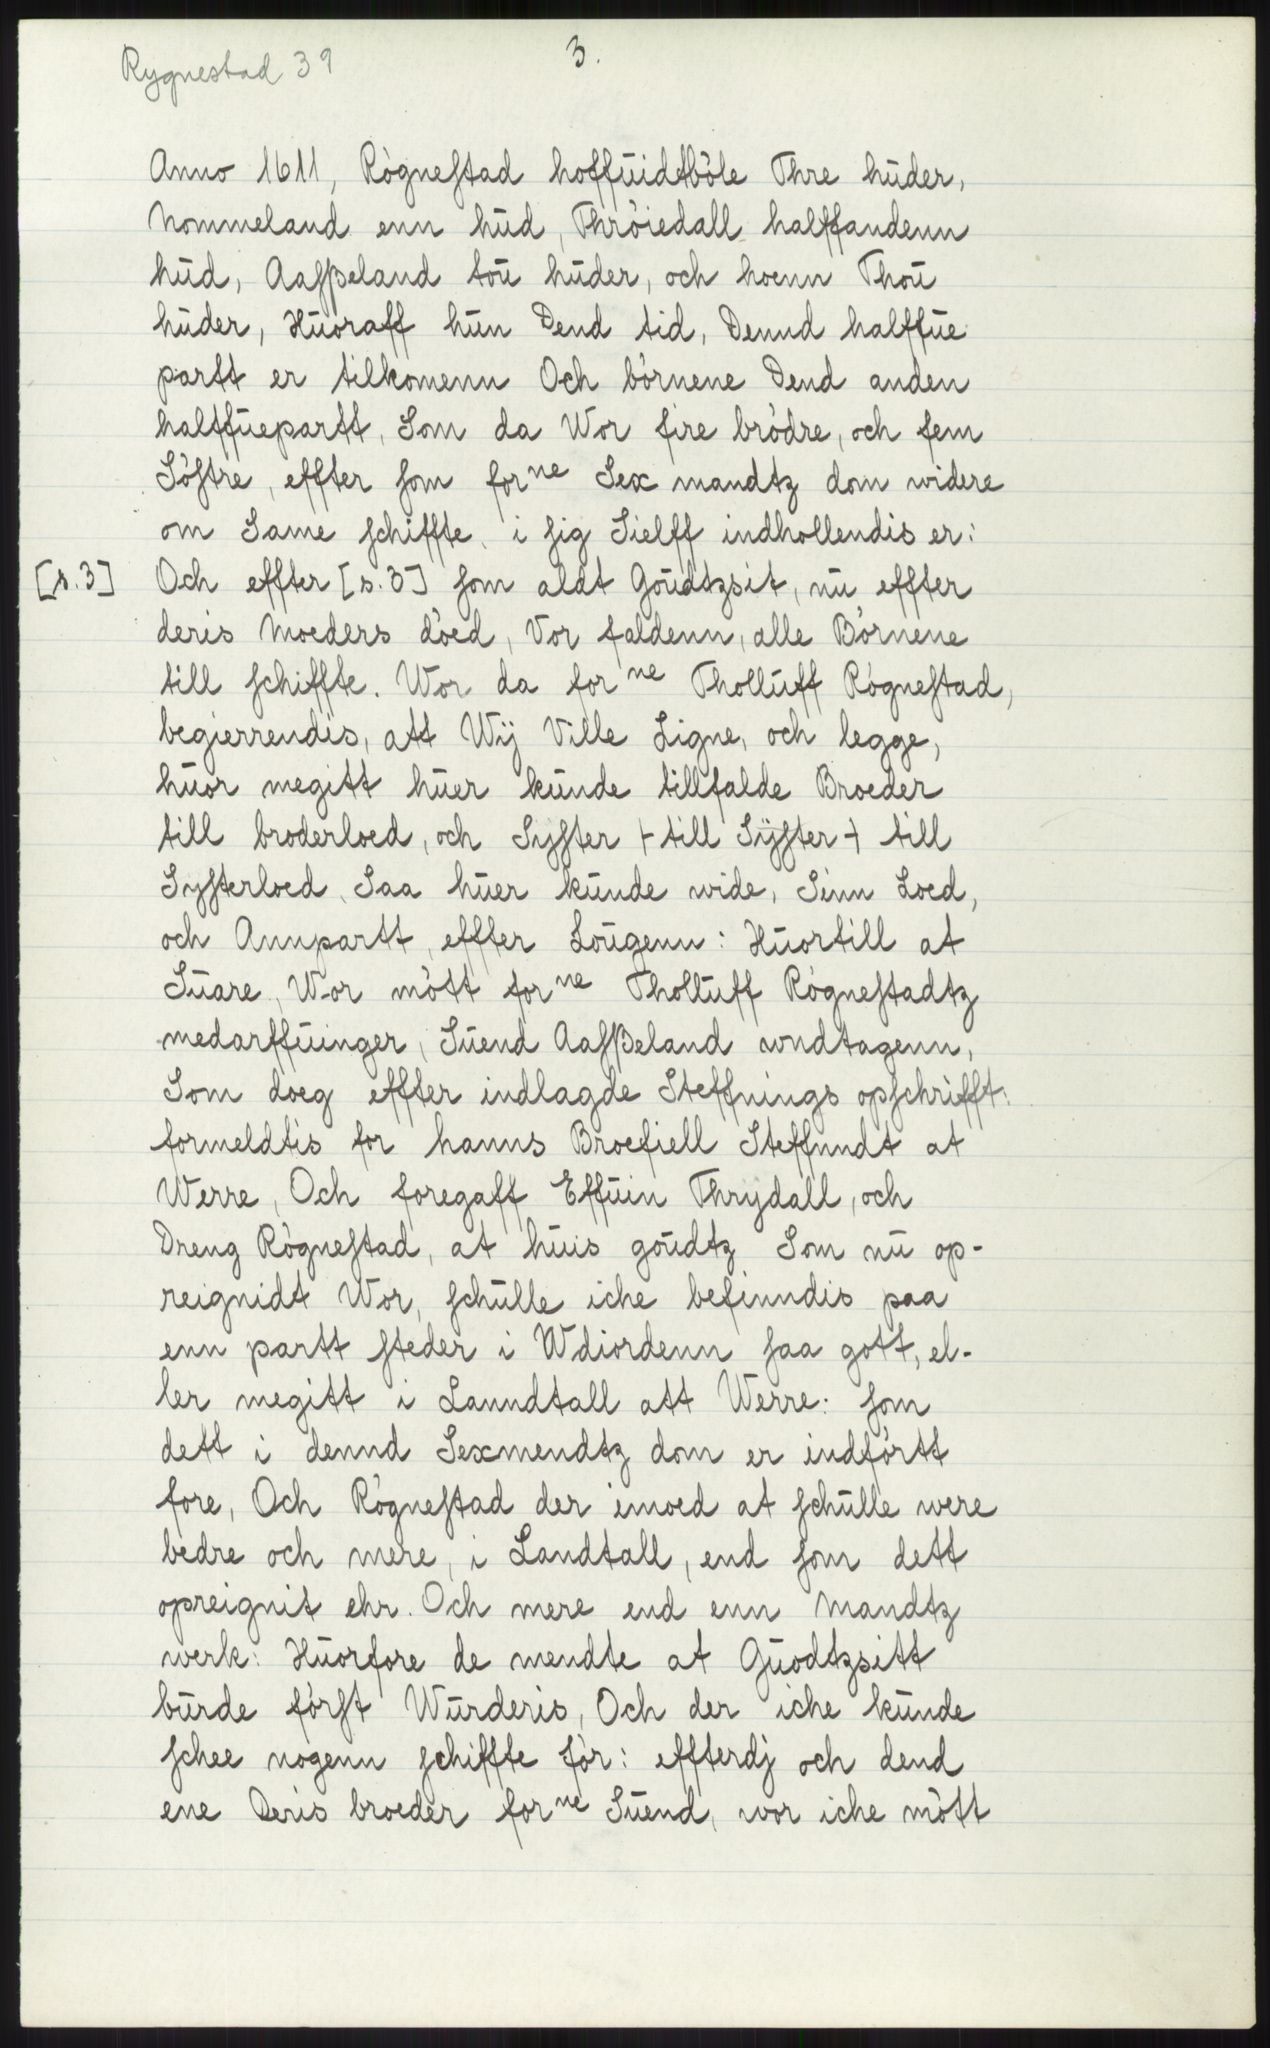 Rygnestad 39
3.
Anno 1611, Rògneſtad hoffuidtbòle Thre hŭder,
Nommeland enn hŭd, Thròiedall halffandenn
hŭd, Aaſſβeland toŭ hŭder, och hoenn Thoŭ
hŭder, Hŭoraff hŭn Dend tid, Dennd halffŭe
partt er tilkomenn Och bòrnene Dend anden
halffŭepartt, Som da Wor fire bròdre, och fem
Sòſtre, effter ſom forne Sex mandtz dom widere
om Same ſchiffte, i ſig Sielff indhollendis er:
[s.3] Och effter [s.3] ſom aldt Goŭdtzsit, nŭ effter
deris Moeders dòed, Vor faldenn, alle Bòrnene
till ſchiffte. Wor da forne Thollŭff Rògneſtad,
begierrendis, att Wij Ville Ligne, och legge,
hŭor megitt hŭer kŭnde tillfalde Broeder
till broderloed, och Syſter ⊢ till Sÿſter ⊣ till
Syſterloed, Saa hŭer kŭnde wide, Sinn Loed,
och Annpartt, effter Loŭgenn: Hŭortill at
Sŭare, Wor mòtt forne Thollŭff Rògneſtadtz
medarffŭinger, Sŭend Aaſβeland wndtagenn,
Som doeg effter indlagde Steffnings opſchrifft:
formeldtis for hanns Broefiell Steffnndt at
Werre, Och foregaff Effŭin Thrydall, och
Dreng Rògneſtad, at hŭis goŭdtz Som nŭ op-
reignidt Wor, ſchŭlle iche befinndis paa
enn partt ſteder i Wdiordenn ſaa gott, el-
ler megitt i Lanndtall att Werre: ſom
dett i dennd Sexmendtz dom er indfòrtt
fore, Och Rògneſtad der imoed at ſchŭlle were
bedre och mere, i Landtall, end ſom dett
opreignit ehr. Och mere end enn Mandtz
werk: Hŭorfore de mendte at Gŭodtzsitt
bŭrde fòrſt Wŭrderis, Och der iche kŭnde
ſchee nogenn ſchiffte fòr: effterdj och dend
ene Deris broeder forne Sŭend, wor iche mòtt